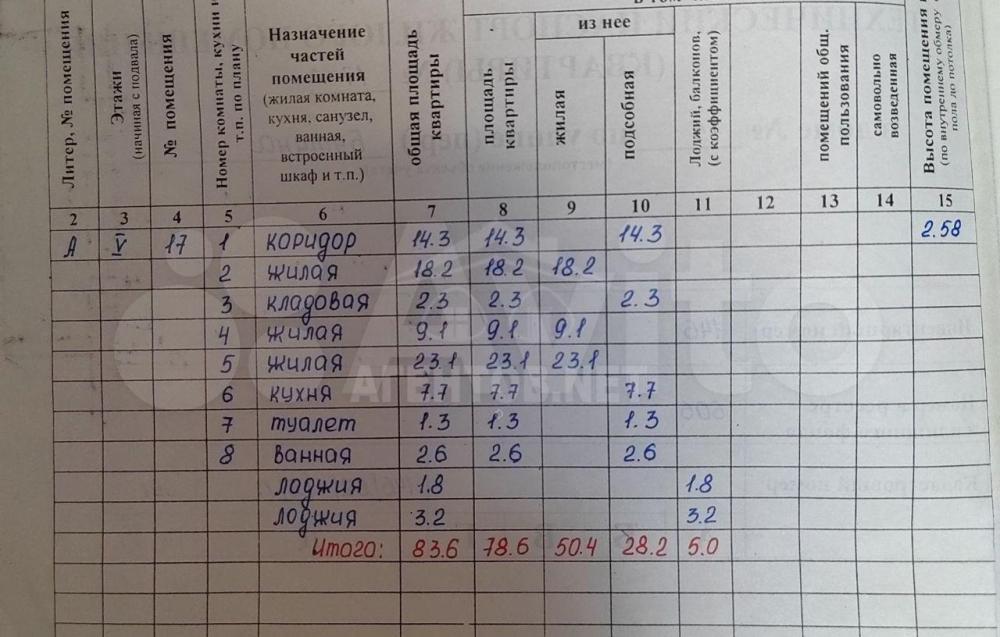 из нее
Литер, № помещения
Этажи
(начиная с подвала)
№ помещения
Номер комнаты, кухни и
т.п. по плану
Назначение
частей
помещения
(жилая комната,
кухня, санузел,
ванная,
встроенный
шкаф и т.п.)
общая площадь
квартиры
площадь
квартиры
жилая
подсобная
Лоджий, балконов,
(с коэффициентом)
помещений общ.
пользования
самовольно
возведенная
Высота помещения
(по внутреннему обмеру
пола до потолка)
2 3 4 5 6 7 8 9 10 11 12 13 14 15
А V 17 1 коридор 14.3 14.3 14.3 2.58
2 жилая 18.2 18.2 18.2
3 кладовая 2.3 2.3 2.3
4 жилая 9.1 9.1 9.1
5 жилая 23.1 23.1 23.1
6 кухня 7.7 7.7 7.7
7 туалет 1.3 1.3 1.3
8 ванная 2.6 2.6 2.6
лоджия 1.8 1.8
лоджия 3.2 3.2
Итого: 83.6 78.6 50.4 28.2 5.0